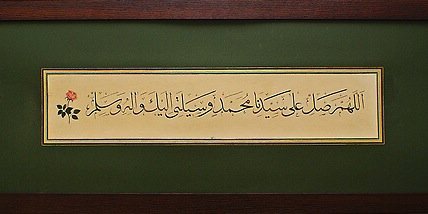 اللهم صل على سيدنا محمد وسيلتي اليك واله وسلم